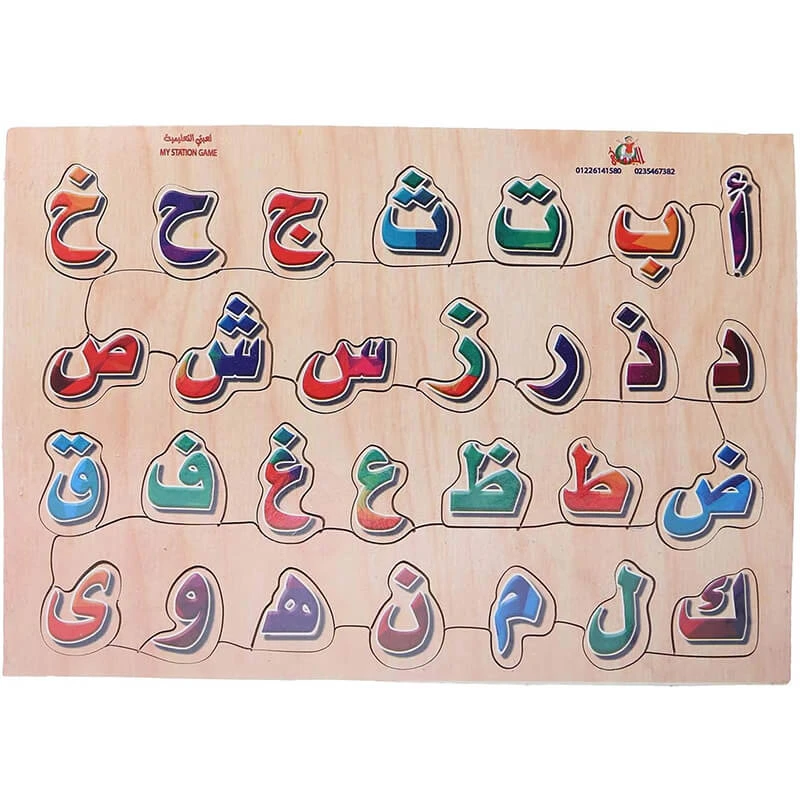 لعبتي التعليمية
MY STATION GAME
01226141580 0235467382
أ ب ت ث ج ح خ
د ذ ر ز س ش ص
ض ط ظ ع غ ف ق
ك ل م ن ه و ى